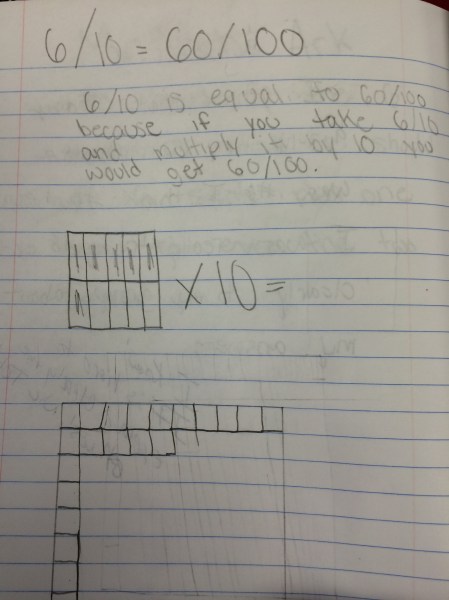 6/10 = 60/100
6/10 is equal to 60/100
because if you take 6/10
and multiply it by 10 you
would get 60/100.
x 10 =